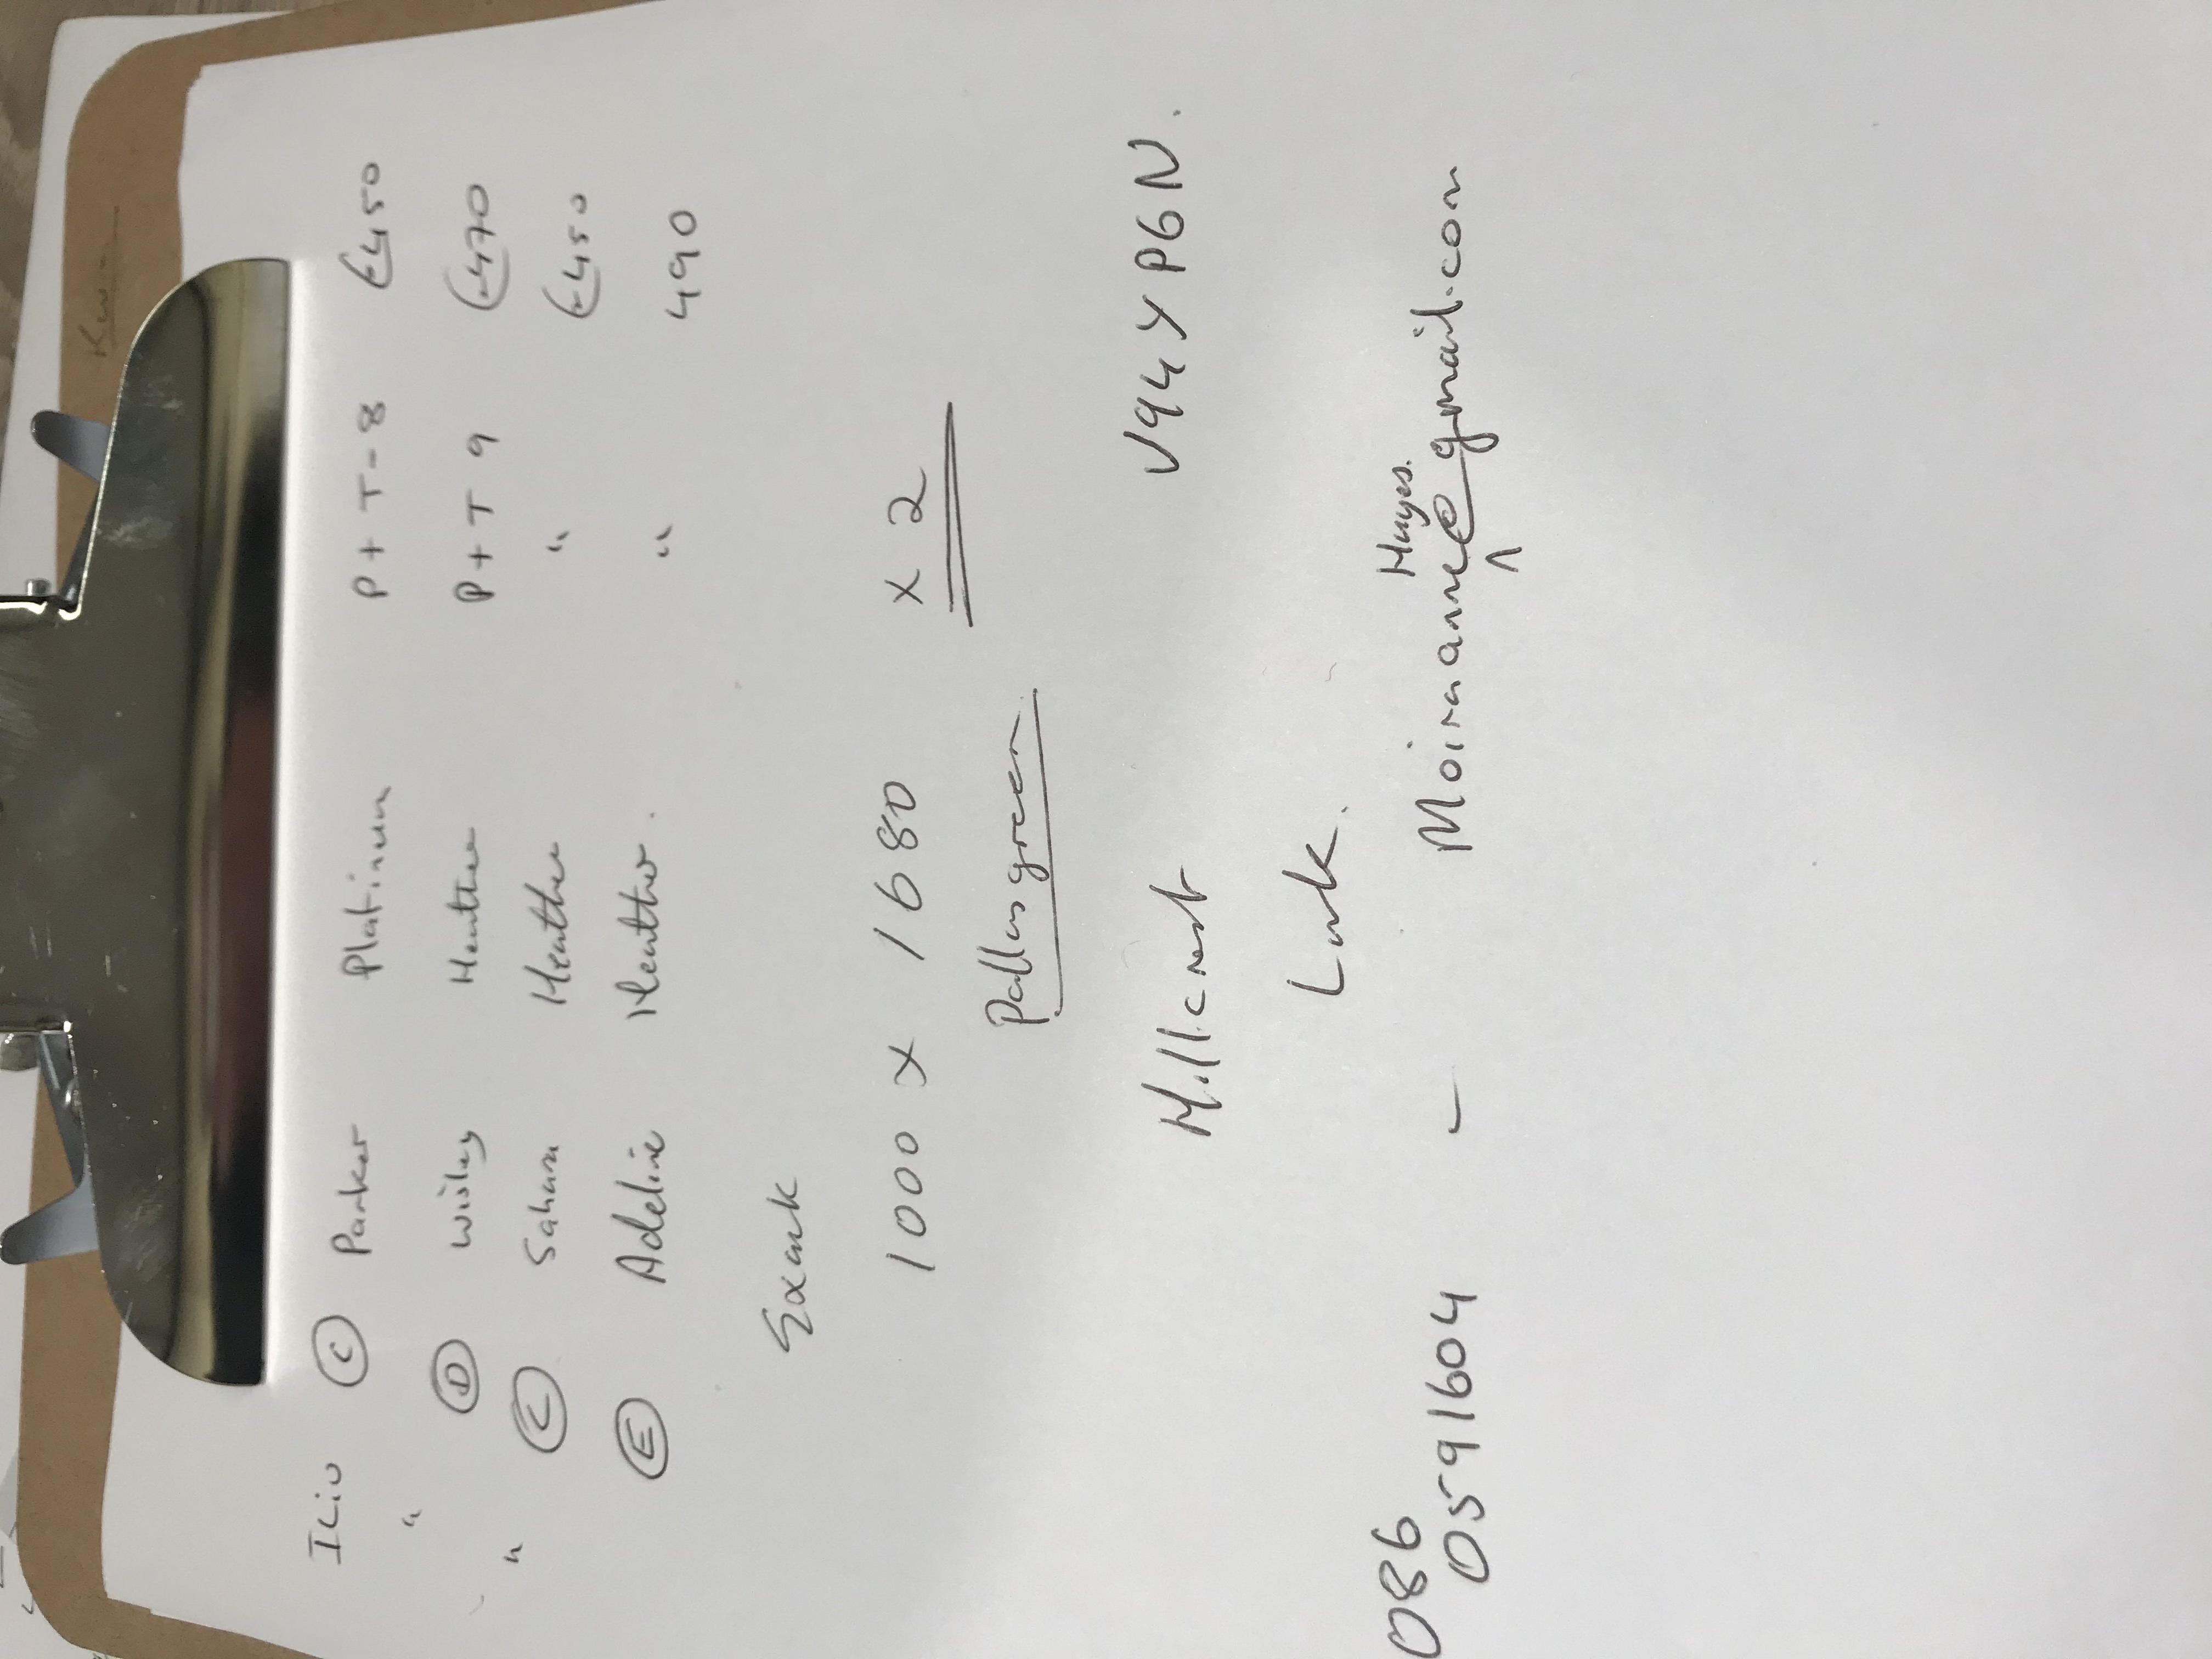 ILiv (C) Parker Platinum P + T - 8 €450
" (D) Wisley Heather P + T 9 €470
" (C) Sahara Heather " €450
(E) Adeline Heather. " 490
Exact
1000 x 1680 x 2
Pallasgreen
Hillcrest V94YP6N.
Link.
086
0591604 - Moiraanne Hayes. @gmail.com